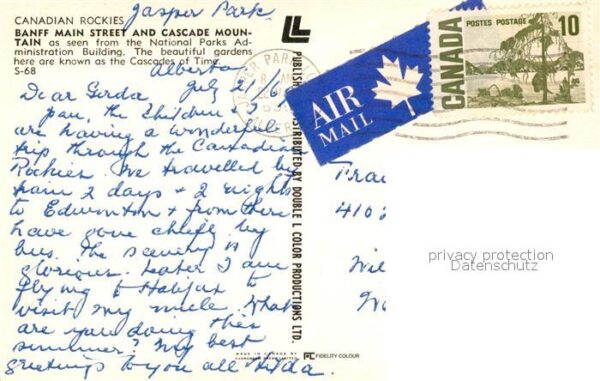 Jasper Park
CANADIAN ROCKIES
BANFF MAIN STREET AND CASCADE MOUN-
TAIN as seen from the National Parks Ad-
ministration Building. The beautiful gardens
here are known as the Cascades of Time.
S-68
Alberta
July 21/6
Dear Gerda
Joan, the children + I
are having a wonderful
trip through the Canadian
Rockies. We travelled by
train 2 days + 2 nights
to Edmonton + from there
have gone chiefly by
bus. The scenery is
glorious. Later I am
flying to Halifax to
visit my uncle. What
are you doing this
summer? My best
greetings to you all Hilda.
PUBLISHED DISTRIBUTED BY DOUBLE L COLOR PRODUCTIONS LTD.
MADE IN CANADA BY
FC FIDELITY COLOUR
JASPER PARK
AIR
MAIL
CANADA
POSTES POSTAGE
10
410
privacy protection
Datenschutz